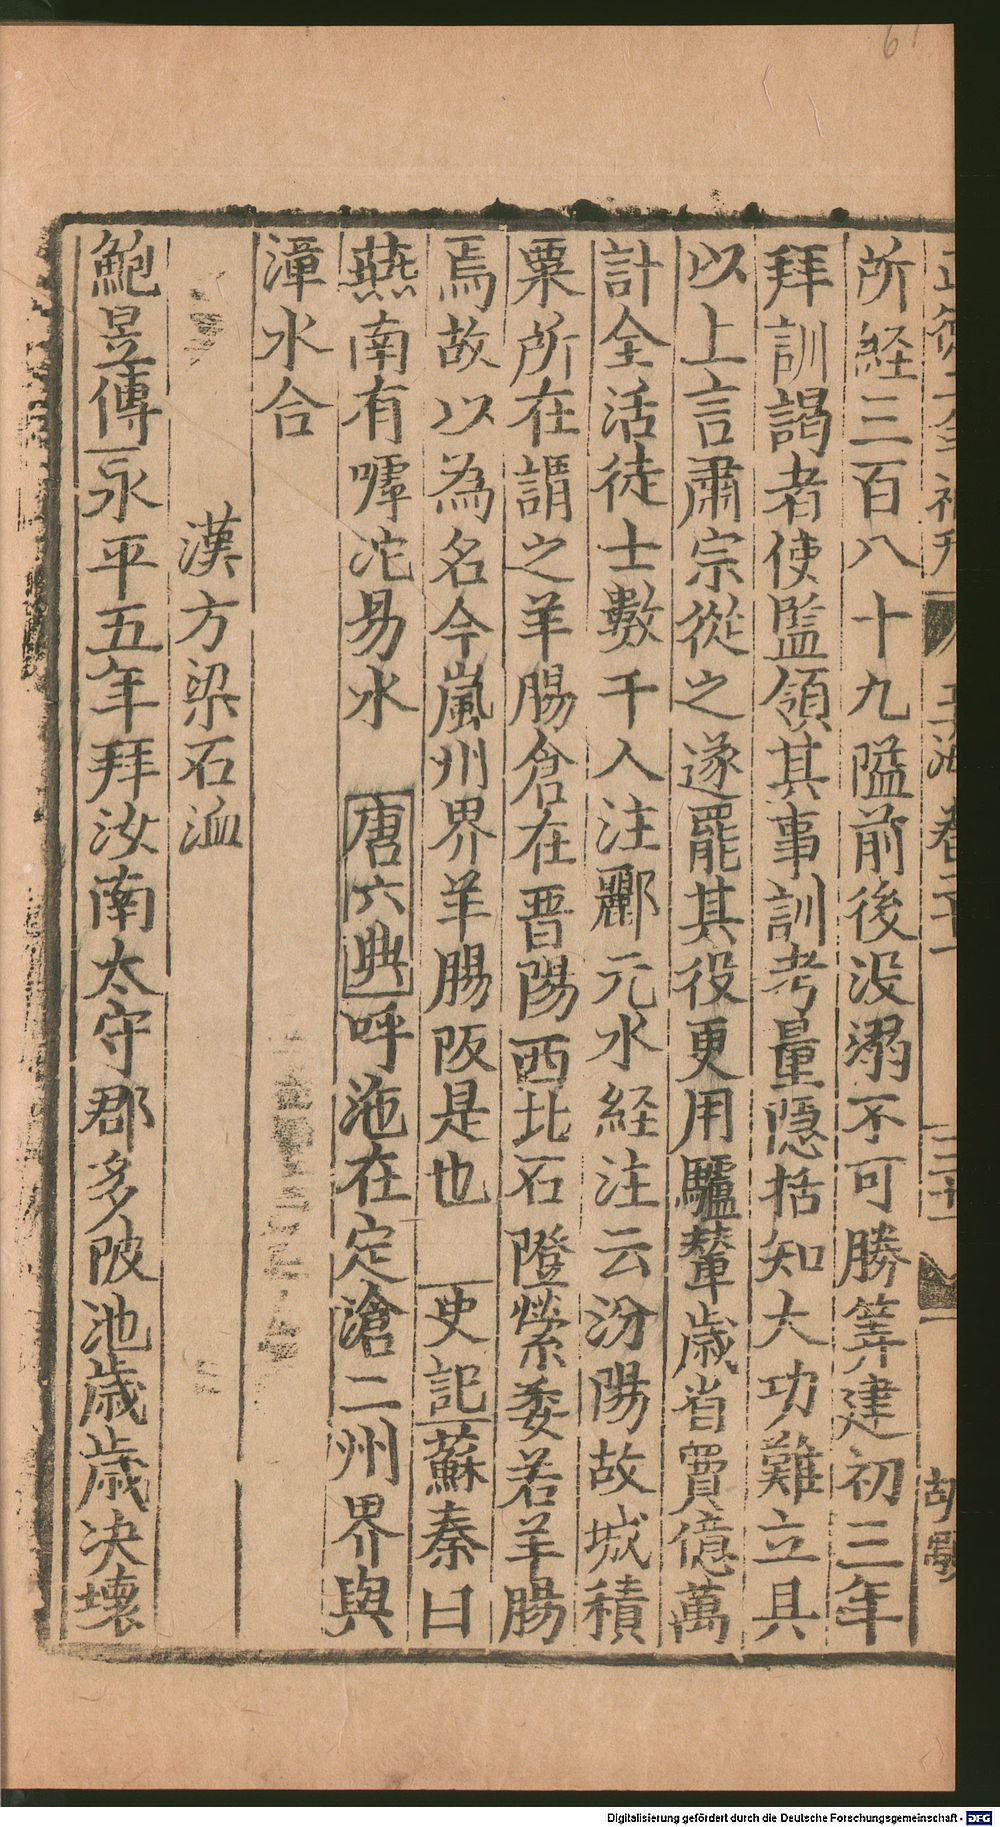 所経三百八十九隘前後没溺不可勝筭建初三年
拜訓謁者使監領其事訓考量隠括知大功難立具
以上言肅宗從之遂罷其役更用驢輦歳省費億萬
計全活徒士數千人注酈元水経注云汾陽故城積
粟所在謂之羊腸倉在晋陽西北石隥縈委若羊腸
焉故以為名今嵐州界羊腸阪是也 史記蘇秦曰
燕南有嘑沱易水 唐六典呼沲在定滄二州界與
漳水合
漢方梁石洫
鮑昱傳永平五年拜汝南太守郡多陂池歳歳决壊
Digitalisierung gefördert durch die Deutsche Forschungsgemeinschaft - DFG